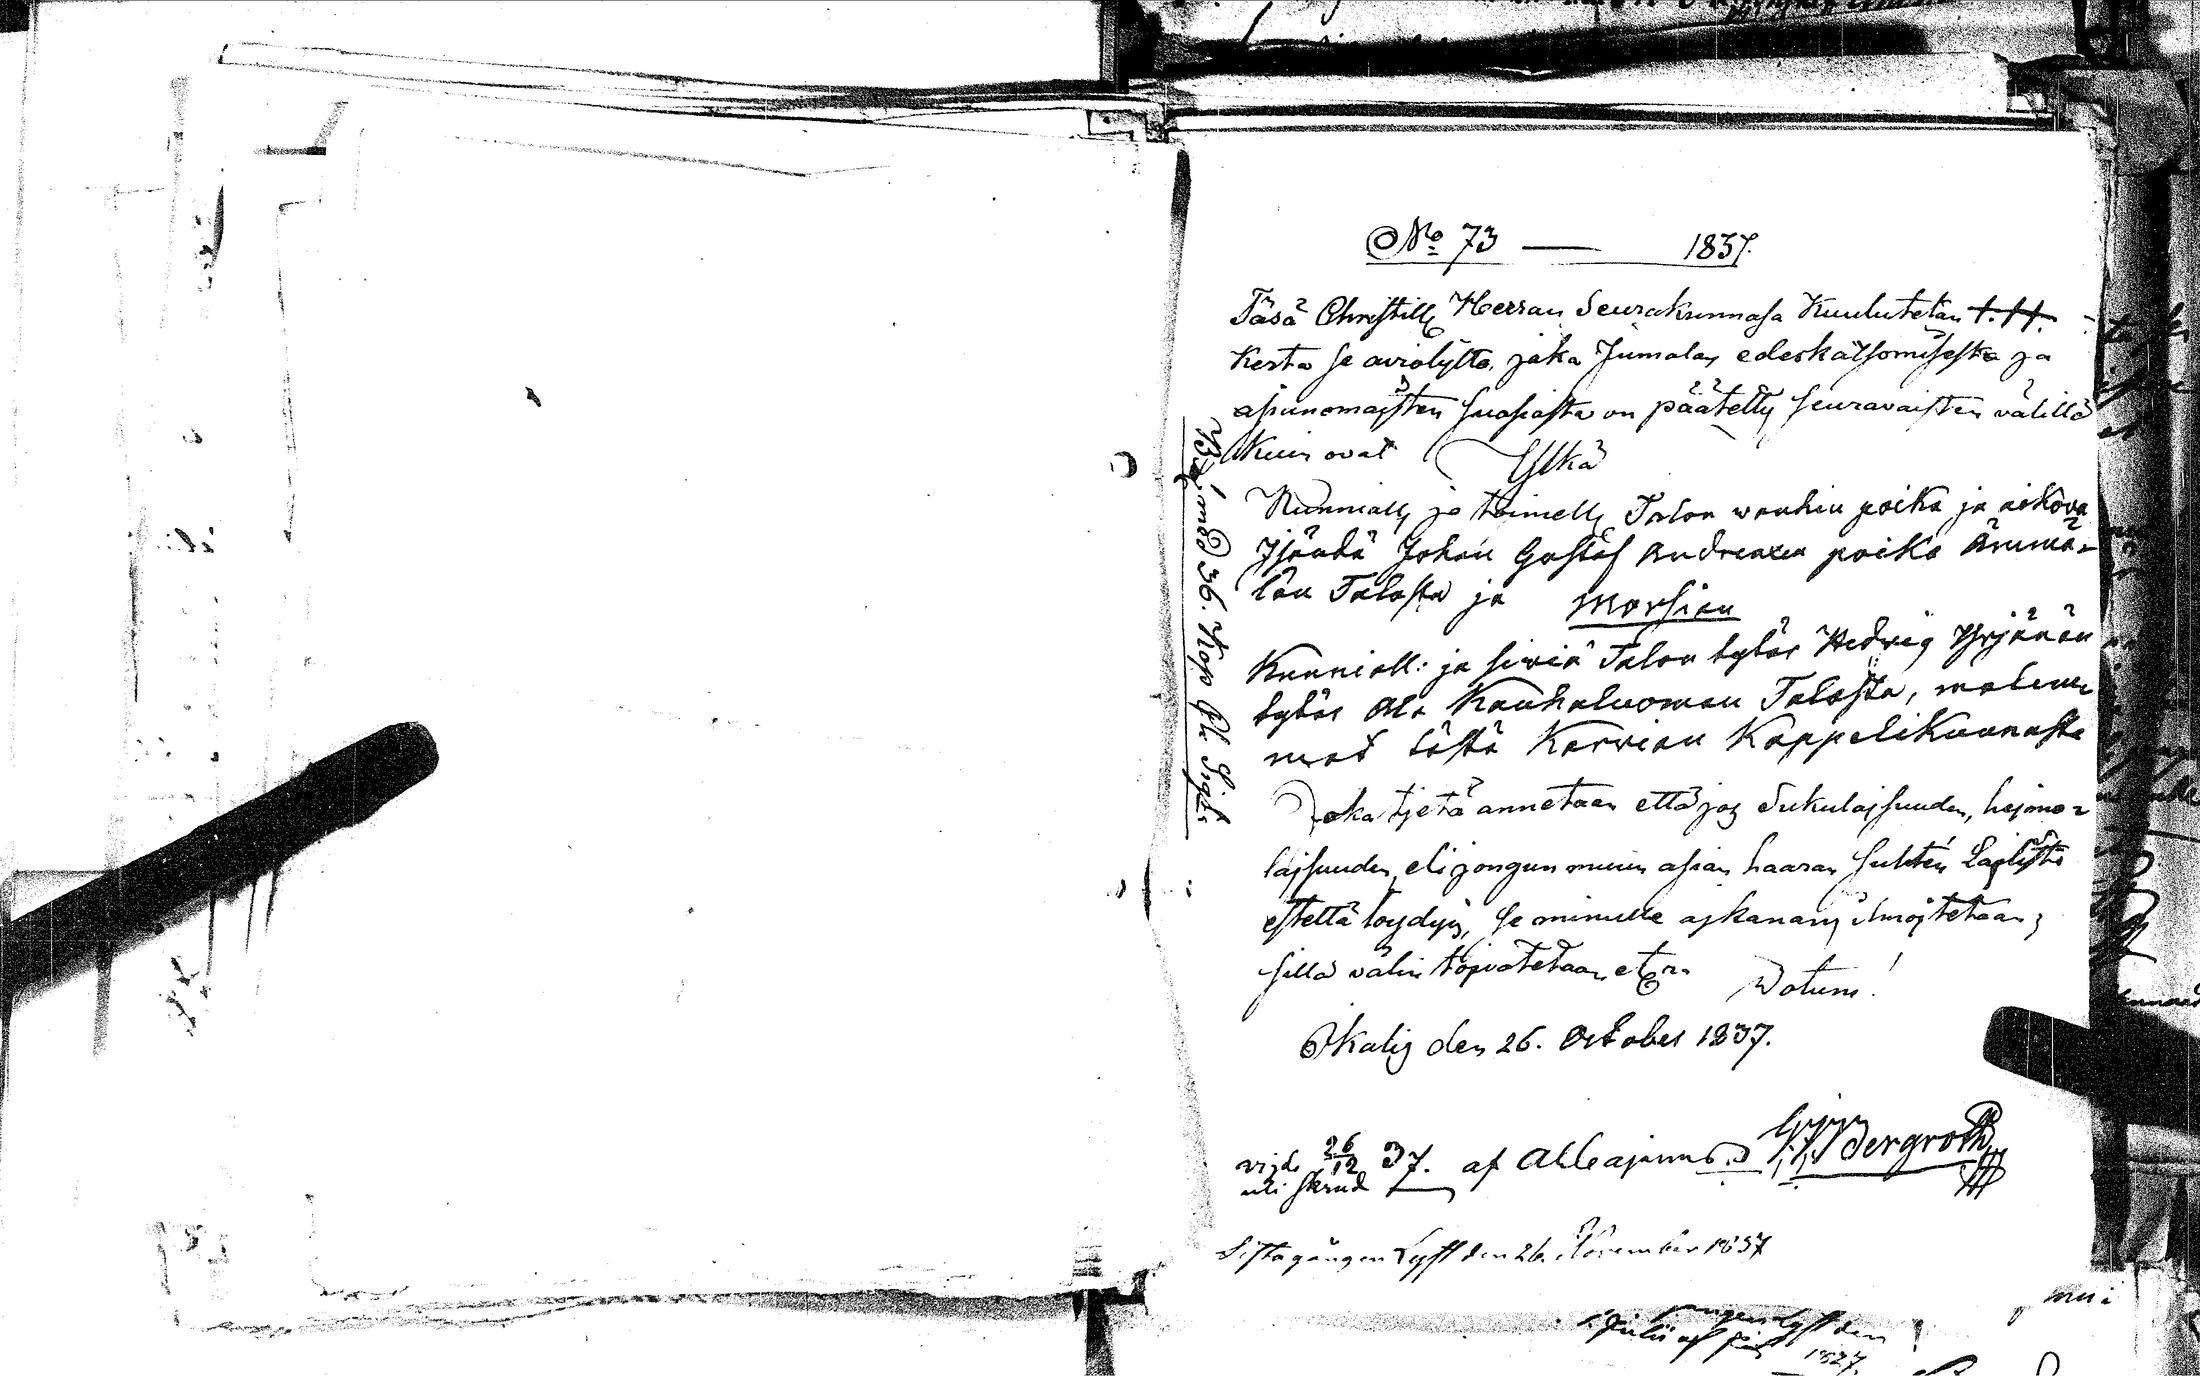 No 73 — 1837.
Täsä Christill Herran Seurakunnasa Kuulutetan 1. 11.
kerta se aviolijtto, joka Jumalan edeskatsomisesta ja
asianomaisten suosiosta on päätetty seuravaisten välillä
kuin ovat Yljkä
Kunniall ja toimell Talon wanhin poika ja aikova
Isändä Johan Gustaf Andreaxen poika Ämmä-
län Talosta ja Morsian
Kunniall: ja siwiä Talon tytär Hedvig Yrjänän
tytär Ala Kauhaluoman Talosta, molem-
mat tästä Karvian Kappelikunnasta
Joka tietä annetaan että jos Sukulaisuuden, heimo-
laisuuden, eli jongun muun asian haaran suhten Laillista
estettä löydyis, se minulle aikanans ilmoitetaan;
sillä välin toivotetaan etc. Votum!
Ikalis den 26. October 1837.
vigde 26/12 37. af
uti skrud
Bergroth
Sista gången lyst den 26. November 1837
B. 36. Kop
gen lyst den
1837.